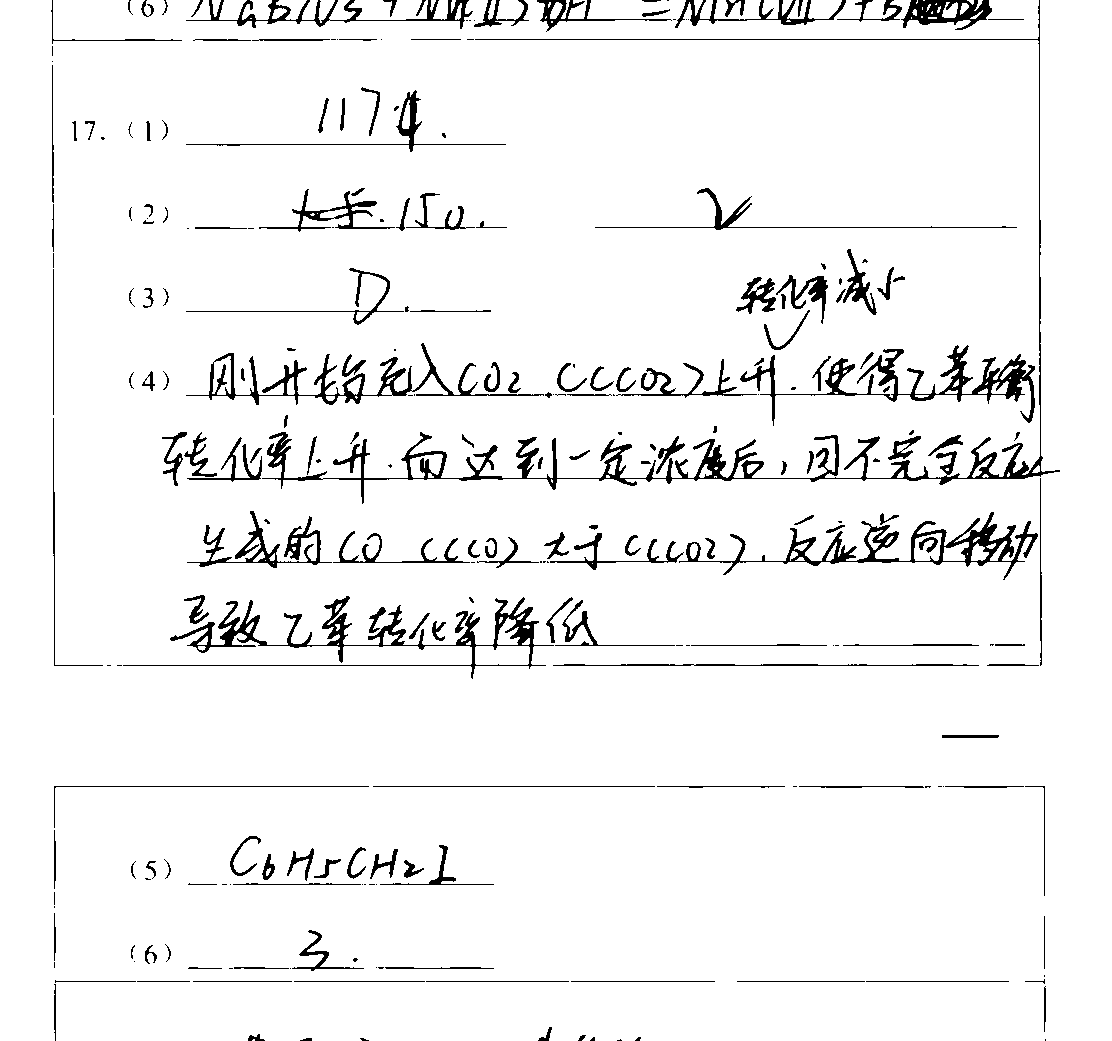 (6)
17. (1) 117.4.
(2) 150. 2
(3) D.
转化率减小
(4) 刚开始充入CO2. C(CO2)上升. 使得乙苯平衡
转化率上升. 而达到一定浓度后, 因不完全反应
生成的CO C(CO) 大于C(CO2). 反应逆向移动
导致乙苯转化率降低
(5) C6H5CH2I
(6) 3.